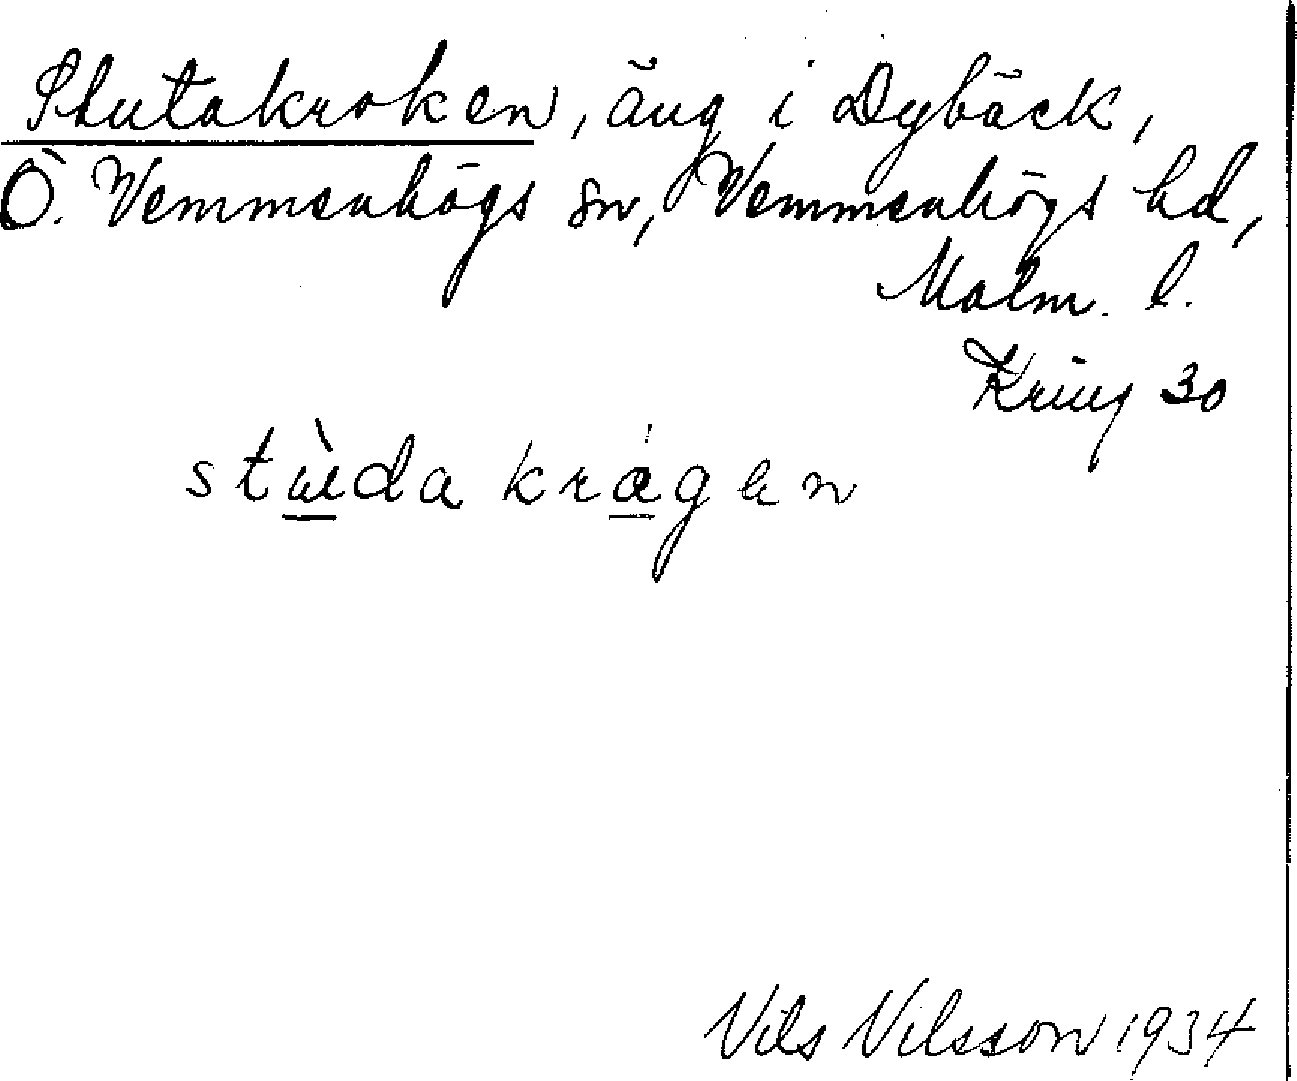 Stutakroken, äng i Dybäck,
Ö. Vemmenhögs sn, Vemmenhögs hd,
Malm. l.
Kring 30
stùeda krågen
Nils Nilsson 1934